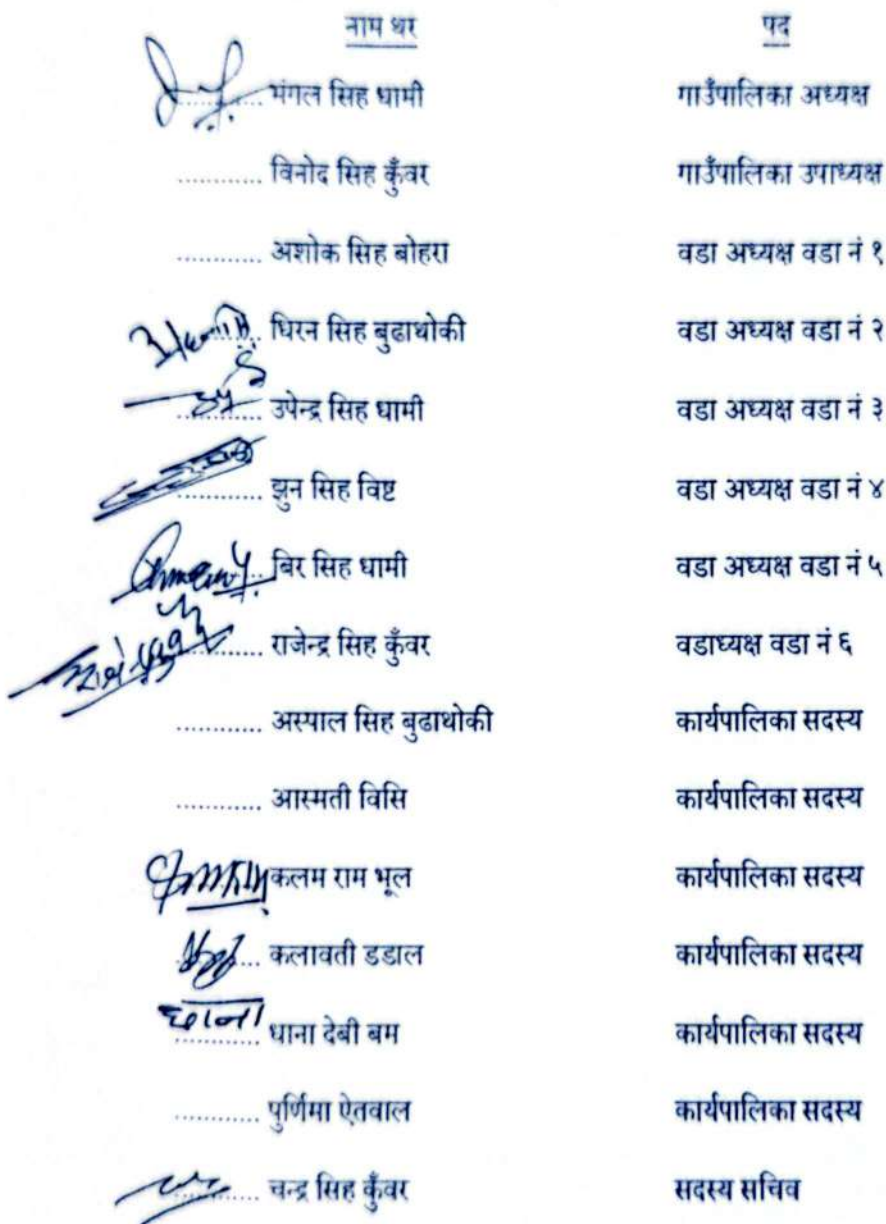 नाम थर पद
............ मंगल सिह धामी गाउँपालिका अध्यक्ष
............ विनोद सिह कुँवर गाउँपालिका उपाध्यक्ष
............ अशोक सिह बोहरा वडा अध्यक्ष वडा नं १
............ धिरन सिह बुढाथोकी वडा अध्यक्ष वडा नं २
............ उपेन्द्र सिह धामी वडा अध्यक्ष वडा नं ३
............ झुन सिह विष्ट वडा अध्यक्ष वडा नं ४
............ बिर सिह धामी वडा अध्यक्ष वडा नं ५
............ राजेन्द्र सिह कुँवर वडाध्यक्ष वडा नं ६
............ अस्पाल सिह बुढाथोकी कार्यपालिका सदस्य
............ आस्मती विसि कार्यपालिका सदस्य
कलम राम भूल कार्यपालिका सदस्य
............ कलावती डडाल कार्यपालिका सदस्य
धाना
............ धाना देबी बम कार्यपालिका सदस्य
............ पुर्णिमा ऐतवाल कार्यपालिका सदस्य
............ चन्द्र सिह कुँवर सदस्य सचिव